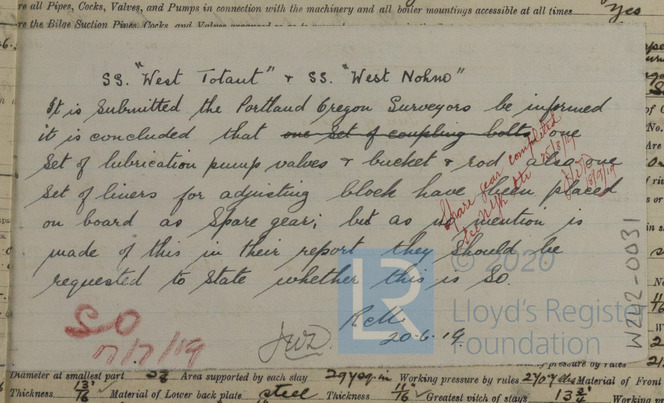 re all Pipes, Cocks, Valves, and Pumps in connection with the machinery and all boiler mountings accessible at all times
yes
re the Bilge Suction Pipes, Cocks and Valves
SS. "West Totant" & SS. "West Nohno"
It is submitted the Portland Oregon Surveyors be informed
it is concluded that one set of coupling bolts, one
set of lubrication pump valves & bucket & rod also one
set of liners for adjusting block have been placed
on board as spare gear; but as no mention is
made of this in their report they should be
requested to state whether this is so.
Spare gear completed
RCM
20-6-19
JWD
SO
7/7/19
W242-0031
© 2020
LR
Lloyd's Register
Foundation
Diameter at smallest part Area supported by each stay 294 sq in Working pressure by rules 270 lbs Material of Front
Thickness 13/16 Material of Lower back plate steel Thickness 11/16 Greatest pitch of stays 13 3/4 Working pr